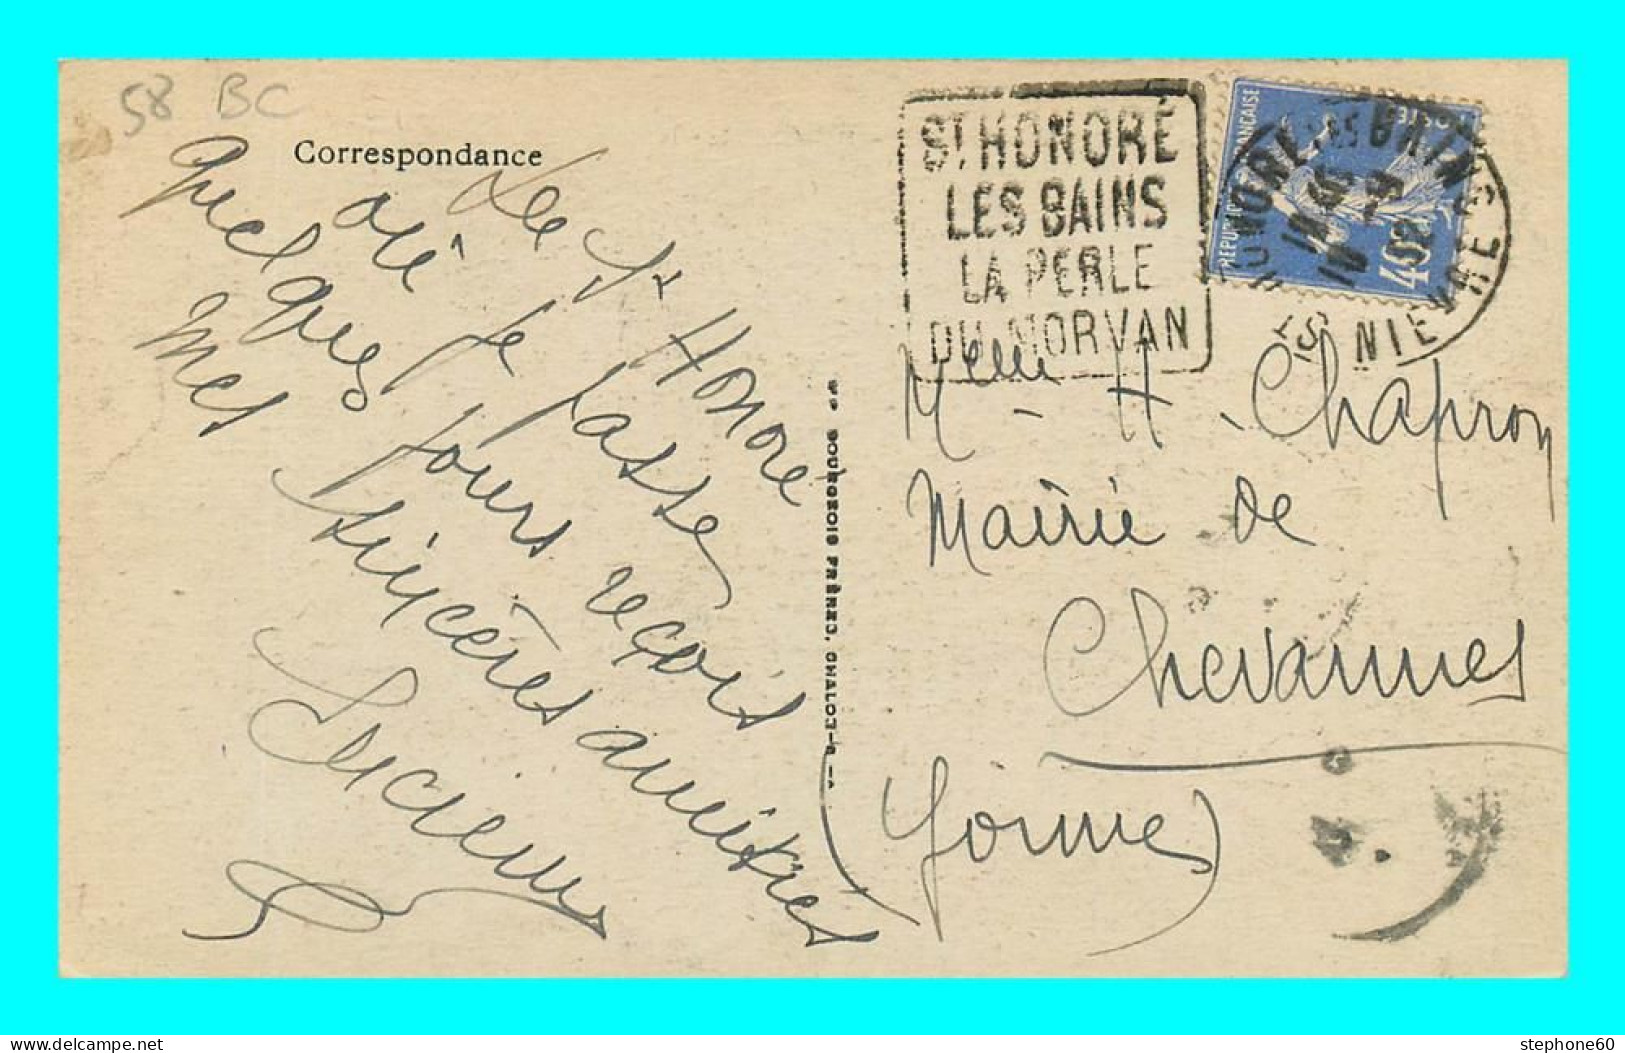 58 BC
Correspondance
De St Honoré
où je passe
quelques jours reçois
mes sincères amitiés
Lucienne
ST HONORÉ
LES BAINS
LA PERLE
DU MORVAN
RÉPUBLIQUE FRANÇAISE
POSTES
40c
ST HONORE LES BAINS
NIEVRE
Melle H. Chapron
Mairie de
Chevannes
(Yonne)
BOURGEOIS FRÈRES, CHALON-S.
stephone60